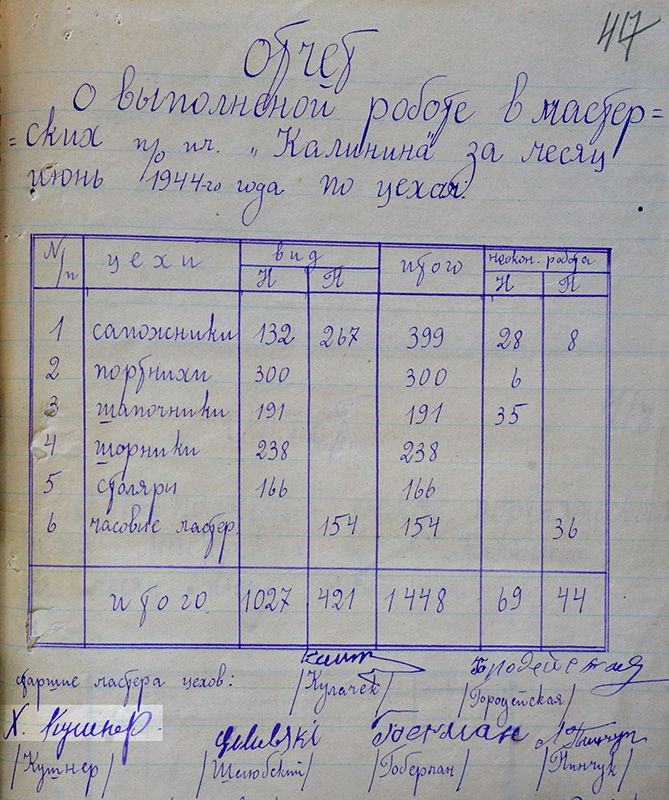 417
Отчет
О выполненой работе в мастер=
=ских пр п.ч. „Калинина" за месяц
июнь 1944-го года по цехам.
N/п цехи вид итого неокон. работа
Н П Н П
1 сапожники 132 267 399 28 8
2 портнихи 300 300 6
3 шапочники 191 191 35
4 шорники 238 238
5 столяры 166 166
6 часовые мастер. 154 154 36
итого 1027 421 1448 69 44
старшие мастера цехов: /Кулачек/ /Городейская/
Х. Кушнер Гоберман Пинчук
/Кушнер/ /Шелюбский/ /Гоберман/ /Пинчук/